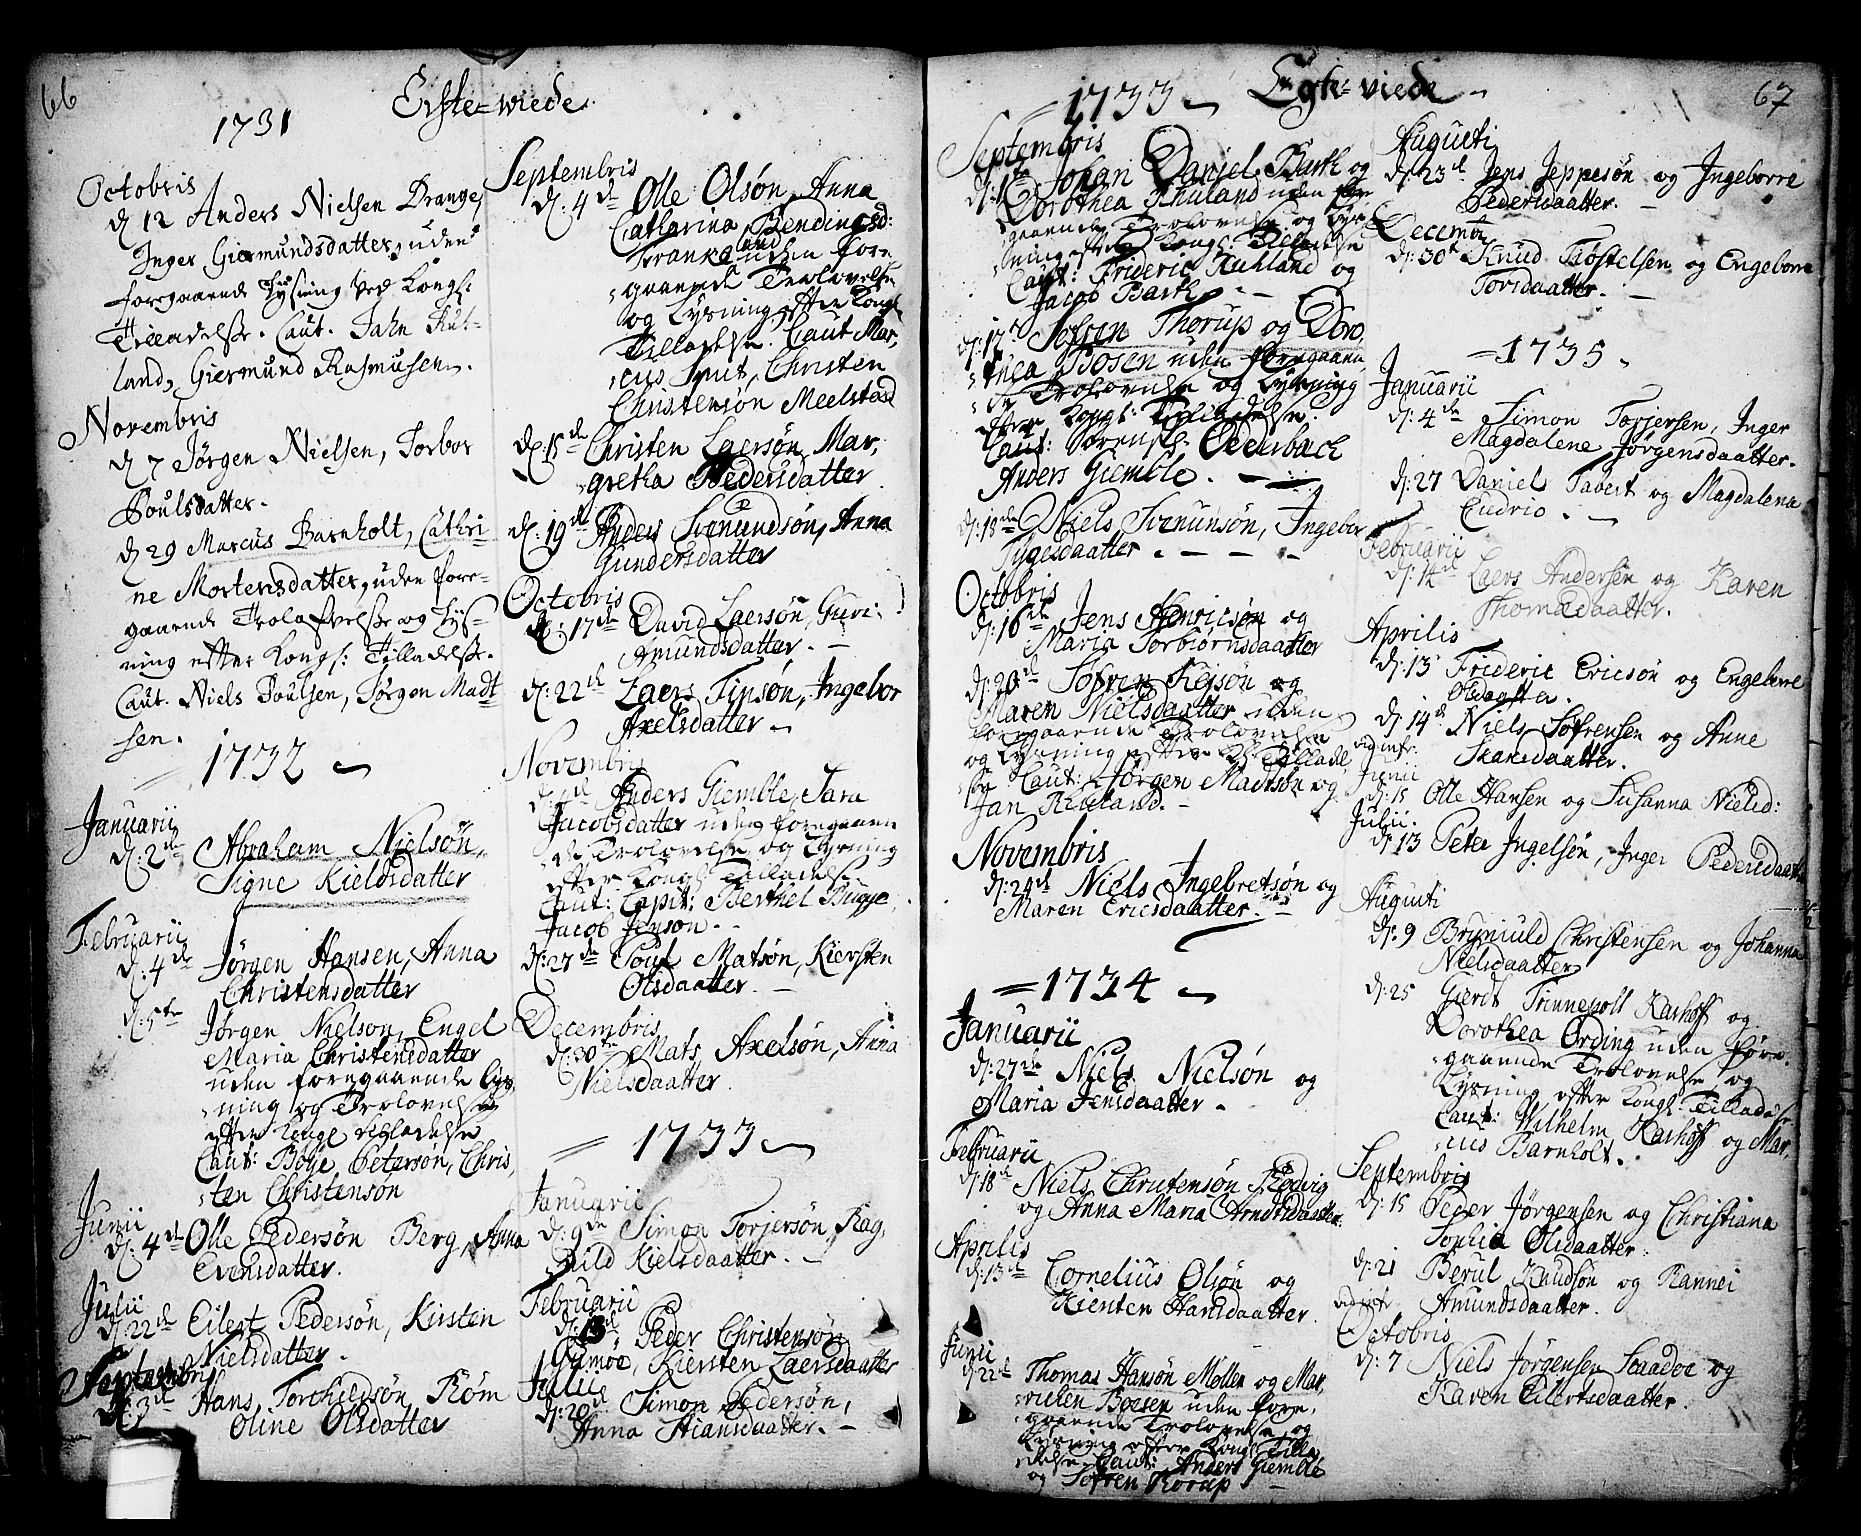 66
Eęte=wiede.
1731
Octobris
d 12 Anders Nielsen Drange,
Inger Giermundsdatter, uden
foregaaende Lysning ved Kongl:
Tilladelse. Caut. Jahn Rut-
land, Giermund Rasmusen.
Novembris
d 7 Jørgen Nielsen, Torbor
Poulsdatter.
d 29 Marcus Barnholt, Cathri-
ne Mortensdatter, uden fore-
gaaende Trolofvelse og Lys-
ning efter Kongl: Tilladelse.
Caut. Niels Poulsen, Jørgen Madt
sen.
1732
Januarii
d: 2de Abraham Nielsøn,
Signe Kieldsdatter
Februarii
d: 4de Jørgen Hansen, Anna
Christensdatter
d: 5te Jørgen Nielson, Engel
Maria Christensdatter
uden foregaaende Lys,
ning og Trolovelse
efter Konge tilladelse
Caut: Boye Petersøn, Chris,
ten Christensøn
Junii
d: 4de Olle Pedersøn Berg, Anna
Evensdatter.
Julii
d: 22de Eilert Pedersøn, Kirsten
Nielsdatter.
Septembris
d: 3de Hans Torchildsøn Røm
Oline Olsdatter
Septembris
d: 4de Olle Olsøn, Anna
Catharina Bendingsd:
uden fore
gaaende Trolovelse
og Lysning efter Kongl
Tilladelse. Caut Mar,
cus Smit, Christen
Christensøn Meelstad
d: 15de Christen Laersøn, Mar,
gretha Pedersdatter
d: 19de Anders Svenundsøn, Anna
Gundersdatter
Octobris
d: 17de David Laersøn, Guri:
Amundsdatter. -
d: 22de Laers Tipsøn, Ingebor
Axelsdatter -
Novembris
Anders Giemble, Sara
Jacobsdatter uden foregaaen
de Trolovelse og Lysning
efter Kongl Tilladelse
Caut: Capit: Berthel Bugge,
Jacob Jenson.
d: 27de Poul Matsøn, Kiersten
Olsdaatter. -
Decembris
d: 30te Mats Axelsøn, Anna
Nielsdaatter.
= 1733
Januarii
d: 9de Simon Torjersøn, Rag,
nild Kielsdaatter. -
Februarii
d: 13de Peder Christensøn
Kiersten Laersdaatter
Julii
d: 20de Simon Pedersøn,
Anna Stiansdaatter. -
67
= 1733 Egte=viede -
Septembris
Johan Daniel Barth og
Dorothea Rhuland uden for
gaaende Trolovelse og Lys
ning efter Kongl: Tilladelse
Caut: Frideric Ruhland og
Jacob Barth. -
d: 17de Søfren Thorup og Doro,
thea Bosen uden foregaaen,
de Trolovelse og Lysning
efter Kongl: Tilladelse.
Caut: Sorensk: Oddersbach
Anders Giemble. -
d: 18de Niels Svenunsøn, Ingebor
Tygesdaatter. - - -
Octobris
d: 16de Jens Henricsøn og
Maria Torbiørnsdaatter
d: 20de Søfren Rejsøn og
Maren Nielsdaatter uden
foregaaende Trolovelse
og Lysning efter K: Tilladel
se Caut: Jørgen Madtsøn og
Jan Ruhland. -
Novembris
d: 24de Niels Ingebretsøn og
Maren Ericsdaatter. -
= 1734
Januarii
d: 27de Niels Nielsøn og
Maria Jensdaatter -
Februarii
d: 18de Niels Christensøn Rødvig
og Anna Maria Arndtsdaatter
Aprilis
d: 13de Cornelius Olsøn og
Kiersten Hansdaatter
Junii
d: 22de Thomas Hansøn Møller og Mar,
Boesen uden fore,
gaaende Trolovelse og
Lysning efter Kongl Tilla
delse. Caut: Anders Giemble
og Søfren Thorup -
Augusti
d: 23de Jens Jeppesøn og Ingeborre
Pedersdaatter. -
Decemb:
d: 30te Knud Tøstelsen og Engeborre
Torsdaatter. -
= 1735
Januarii
d: 4de Simon Torjersen, Inger
Magdalene Jørgensdaatter.
d: 27 Daniel Tabert og Magdalena
Eudrio. -
Februarii
d: 14de Laers Andersen og Karen
Thomædaatter.
Aprilis
d: 13 Frideric Ericsøn og Engeborre
Olsdaatter.
d: 14de Niels Søfrensen og Anne
daatter.
vid infr.
Junii
d: 15 Olle Hansen og Susanna Nielsd:
Julii.
d: 13 Peter Ingelsøn, Inger Pedersdaatter
Augusti
d: 9 Brynjuld Christensen og Johanna
Nielsdaatter
d: 25 Gierdt Trinnepoll Karhoff og
Dorothea Ording uden fore,
gaaende Trolovelse og
Lysning efter Kongl: Tilladelse
Caut: Wilhelm Karhoff og Mar,
cus Barnholt.
Septembris
d: 15 Peder Jørgensen og Christiana
Sophia Olsdaatter:
d: 21 Berul Knudsøn og Rannei
Amundsdaatter.
Octobris
d: 7 Niels Jørgensen Scaadoe og
Karen Eilertsdaatter.